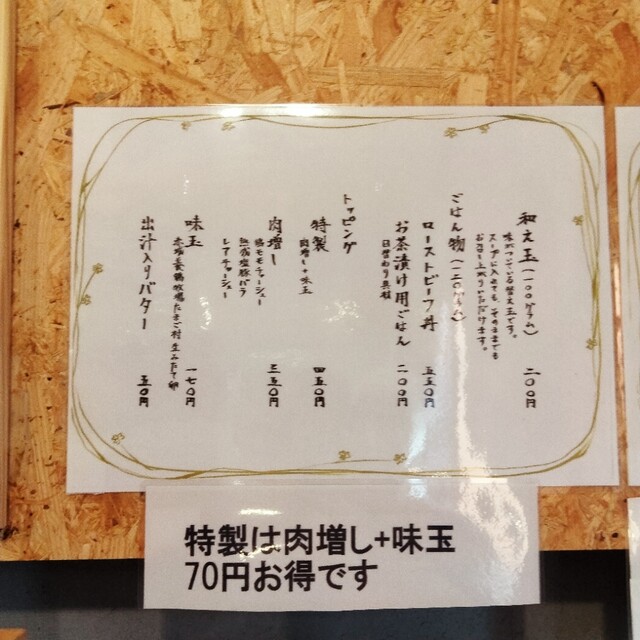 和え玉(一〇〇グラム) 二〇〇円
味がついている替え玉です。
スープに入れても、そのままでも
お召し上がりいただけます。
ごはん物(一二〇グラム)
ローストビーフ丼 五五〇円
お茶漬け用ごはん 二〇〇円
日替わり具材
トッピング
特製 四五〇円
肉増し+味玉
肉増し 三五〇円
鶏モモチャーシュー
熟成塩豚バラ
レアチャーシュー
味玉 一七〇円
養鶏牧場たまご村生みたて卵
出汁入りバター 五〇円
特製は肉増し+味玉
70円お得です